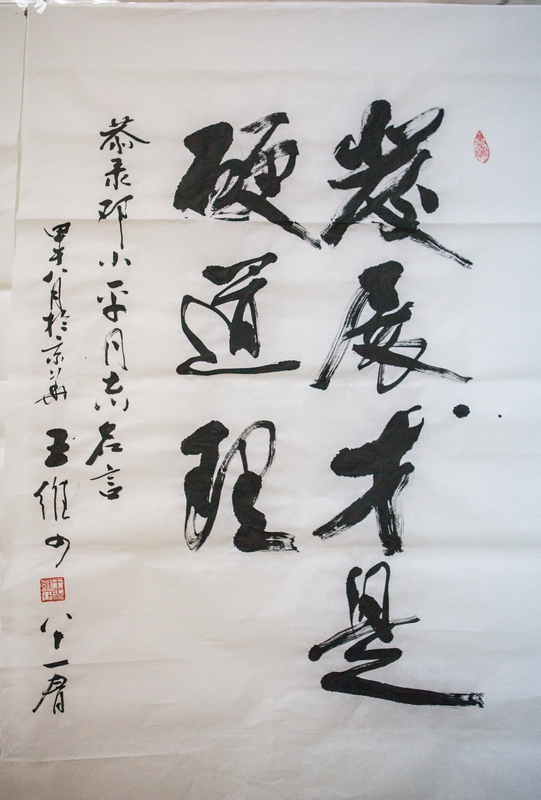 發展才是
硬道理
恭录邓小平同志名言
甲午八月於京華 王维 八十一春